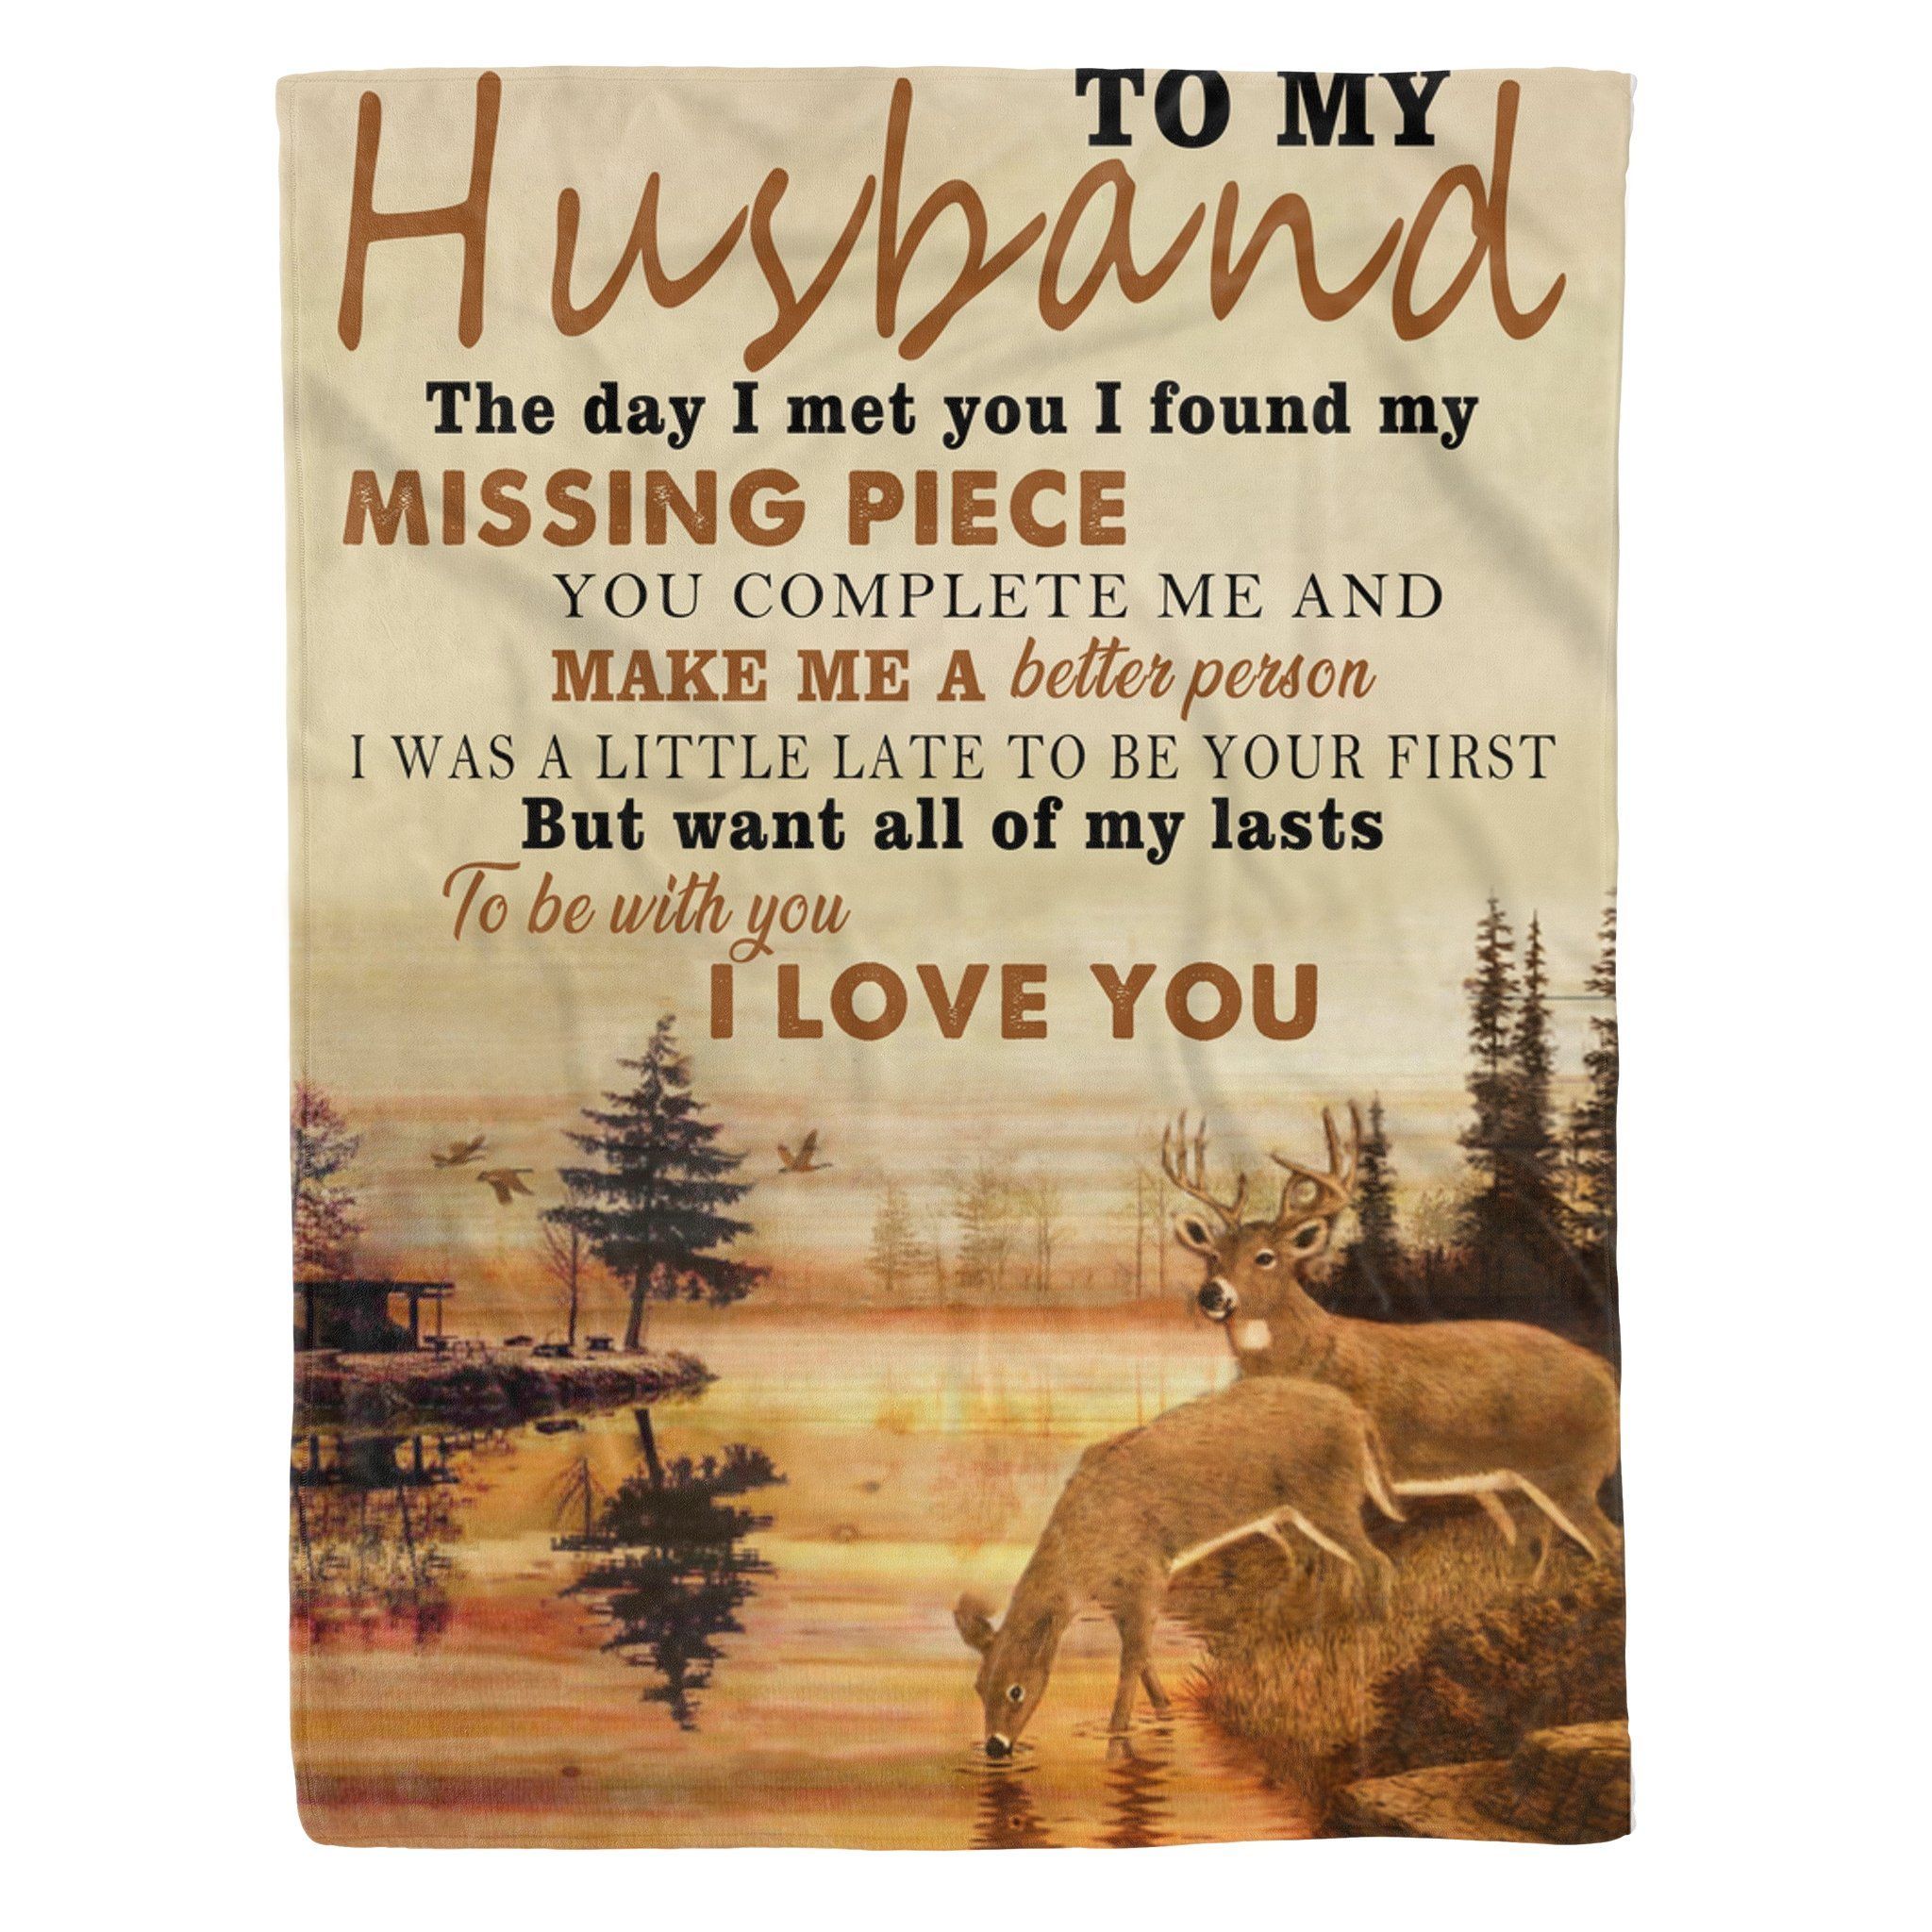 TO MY
Husband
The day I met you I found my
MISSING PIECE
YOU COMPLETE ME AND
MAKE ME A better person
I WAS A LITTLE LATE TO BE YOUR FIRST
But want all of my lasts
To be with you
I LOVE YOU